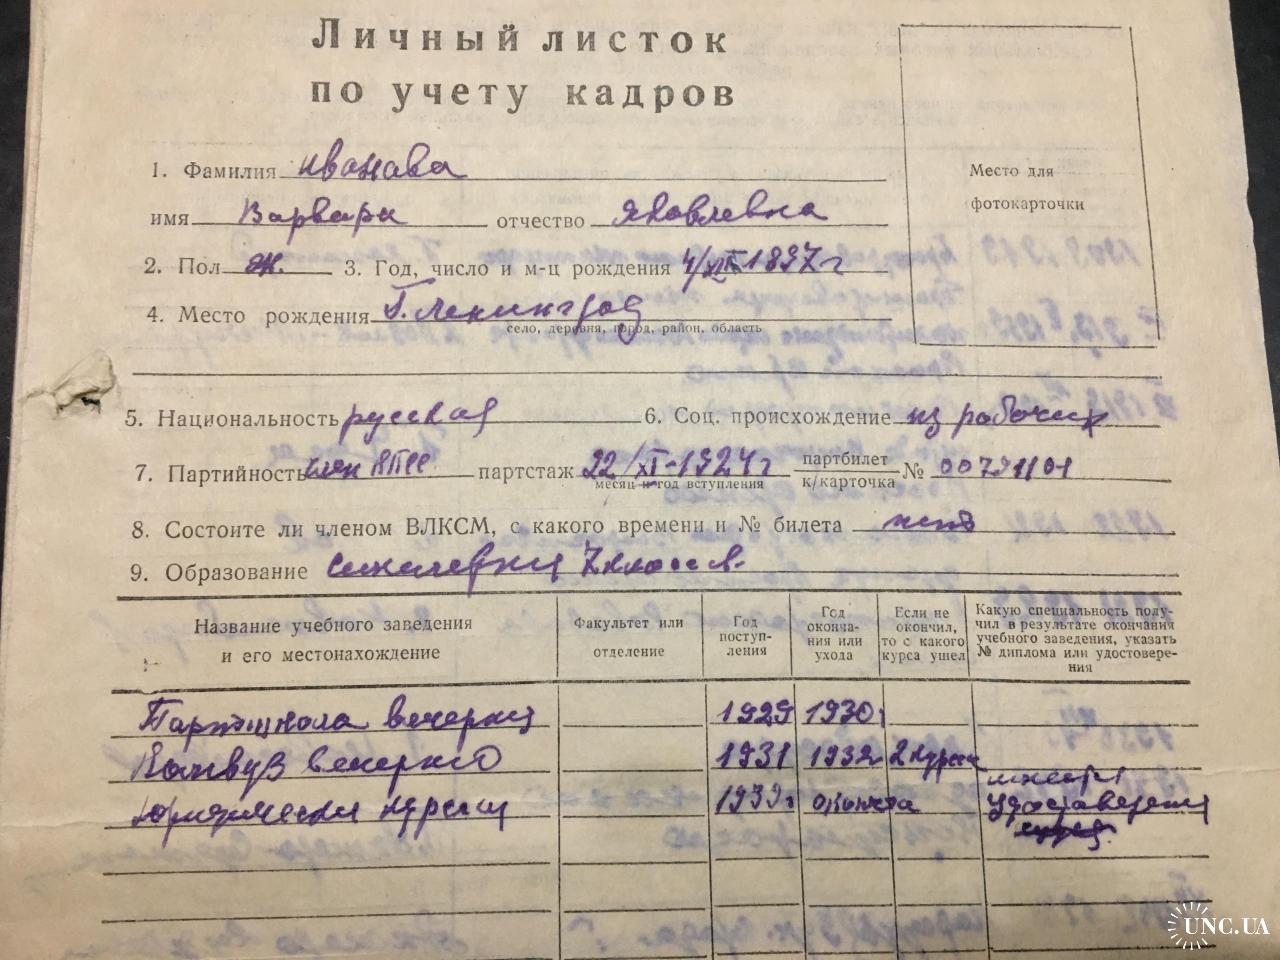 Личный листок
по учету кадров
1. Фамилия Иванава
имя Варвара отчество Яковлевна
2. Пол ж. 3. Год, число и м-ц рождения 4/XII 1897 г
4. Место рождения Г. Ленинград
село, деревня, город, район, область
Место для
фотокарточки
5. Национальность русская 6. Соц. происхождение из рабочих
7. Партийность член КПСС партстаж 22/XI-1924 г партбилет
к/карточка № 00791101
месяц и год вступления
8. Состоите ли членом ВЛКСМ, с какого времени и № билета нет
9. Образование 7 классов.
Название учебного заведения
и его местонахождение
Факультет или
отделение
Год
поступ-
ления
Год
оконча-
ния или
ухода
Если не
окончил,
то с какого
курса ушел
Какую специальность полу-
чил в результате окончания
учебного заведения, указать
№ диплома или удостовере-
ния
Партшкола вечерня 1929 1930г
Комвуз вечерно 1931 1932 2 курса
Юридически курсы 1939г
UNC.UA